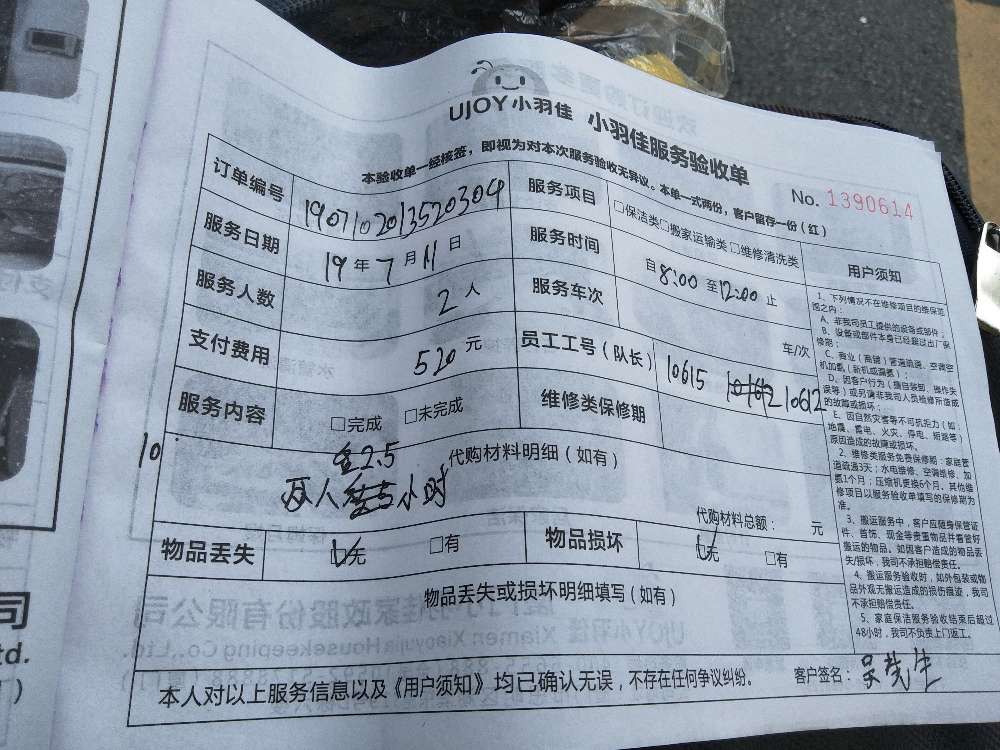 UJOY小羽佳 小羽佳服务验收单
本验收单一经核签，即视为对本次服务验收无异议。本单一式两份，客户留存一份（红）
No. 1390614
订单编号 1907102013520304 服务项目 □保洁类□搬家运输类 □维修清洗类
服务日期 19年7月11日 服务时间 自8:00至12:00止
服务人数 2人 服务车次 车/次
支付费用 520元 员工工号（队长） 10615 10612
服务内容 □完成 □未完成 维修类保修期
代购材料明细（如有）
10
2.5
小时
代购材料总额： 元
物品丢失 □无 □有 物品损坏 □无 □有
物品丢失或损坏明细填写（如有）
本人对以上服务信息以及《用户须知》均已确认无误，不存在任何争议纠纷。 客户签名：吴先生
用户须知
1、下列情况不在维修项目的维保范
围之内：
A、非我司员工提供的设备或部件；
B、设备或部件本身已经超过出厂保
修期；
C、商业（商铺）管道疏通、空调空
机加氨（新机或漏氨）；
D、因客户行为（擅自装卸、操作失
误等）或另请非我司人员检修所造成
的故障或损坏；
E、因自然灾害等不可抗拒力（如：
地震、雷电、火灾、停电、短路等）
原因造成的故障或损坏。
2、维修类服务免费保修期：家庭管
道疏通3天；水电维修、空调维修、加
氨1个月；压缩机更换6个月。其他维
修项目以服务验收单填写的保修期为
准。
3、搬运服务中，客户应随身保管证
件、首饰、现金等贵重物品并看管好
搬运的物品。如因客户造成的物品丢
失/损坏，我司不承担赔偿责任。
4、搬运服务验收时，如外包装或物
品外观无搬运造成的损伤痕迹，我司
不承担赔偿责任。
5、家庭保洁服务验收结束后超过
48小时，我司不负责上门返工。
司
td.